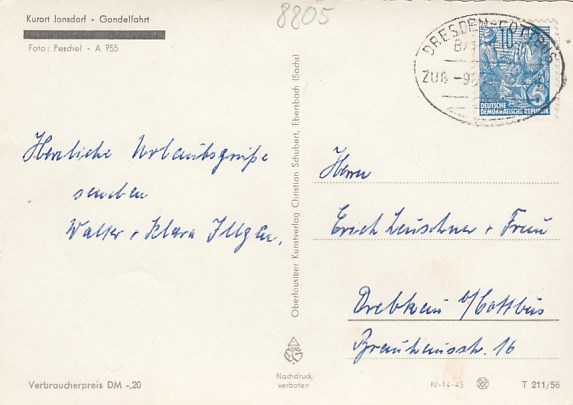 8805
Kurort Jonsdorf - Gondelfahrt
Foto: Peschel - A 755
DRESDEN-COTTBUS
ZUG
10
5
DEUTSCHE
DEMOKRATISCHE REPUBLIK
Herzliche Urlaubsgrüße
senden
Walter + Klara Illgen.
Oberlausitzer Kunstverlag Christian Schubert, Ebersbach (Sachs)
Herrn
Erich Leuschner + Frau
Drebkau b/Cottbus
Brauhausstr. 16
Nachdruck
verboten
Verbraucherpreis DM -,20
IV-14-45
T 211/56